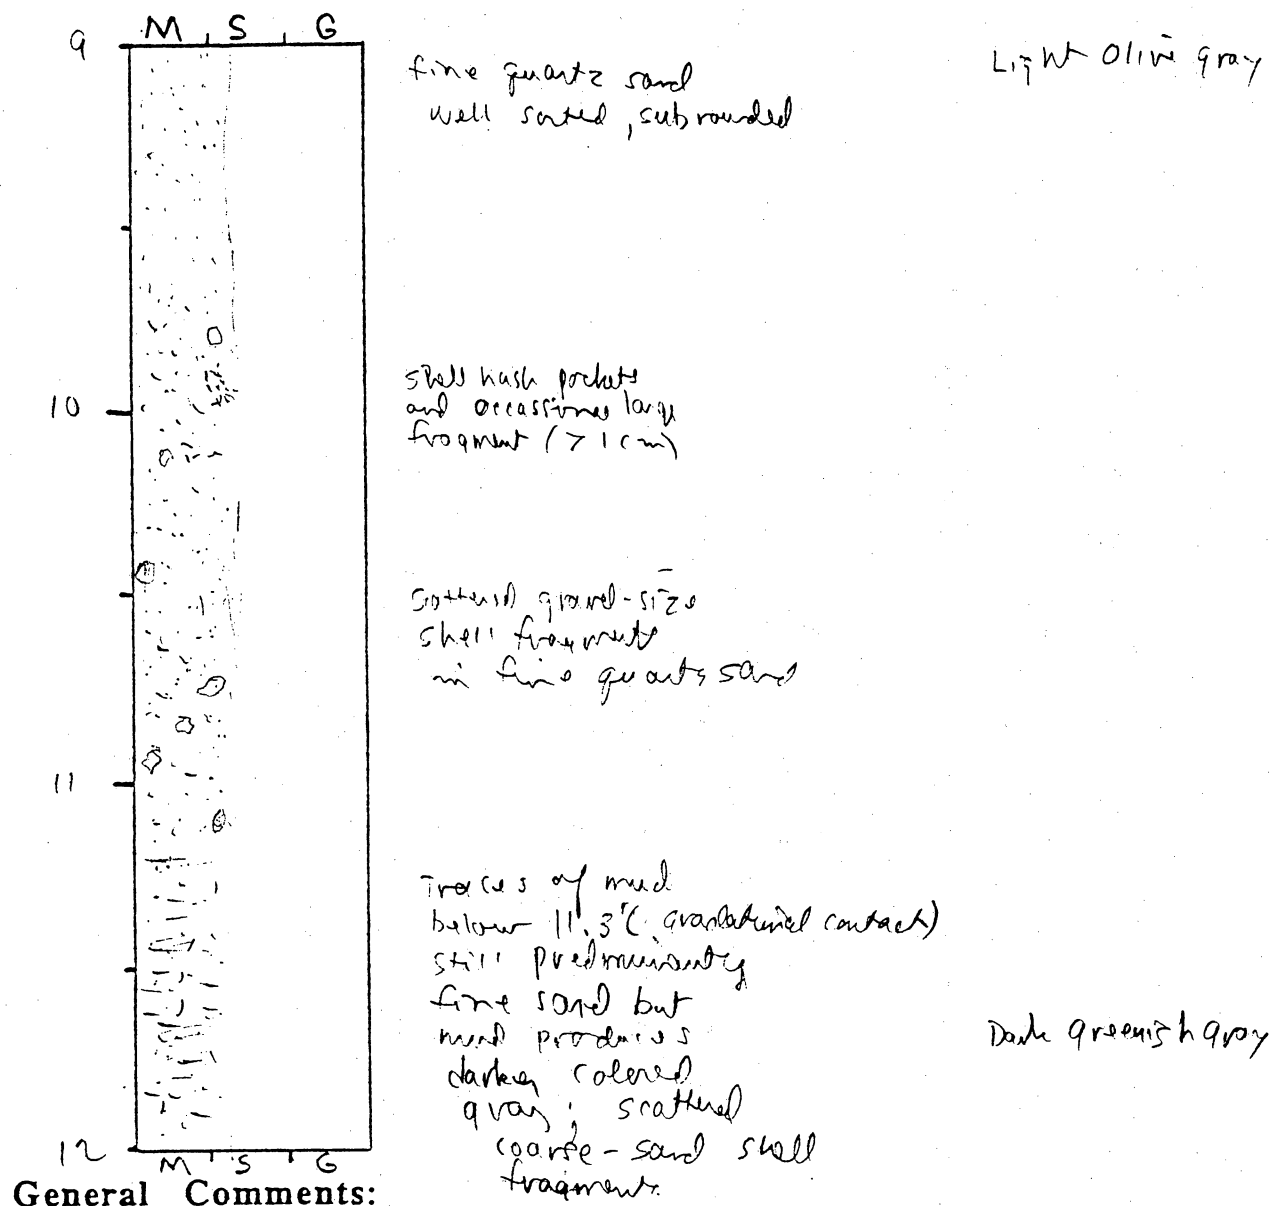 M S G
9
fine quartz sand
well sorted, subrounded
Light Olive gray
shell hash pockets
and occassional large
fragment (> 1 cm)
10
scattered gravel-size
shell fragments
in fine quartz sand
11
Traces of mud
below 11.3' (gradational contact)
still predominantly
fine sand but
mud produces
darker colored
gray; scattered
coarse-sand shell
fragments.
Dark greenish gray
12
M S G
General Comments: